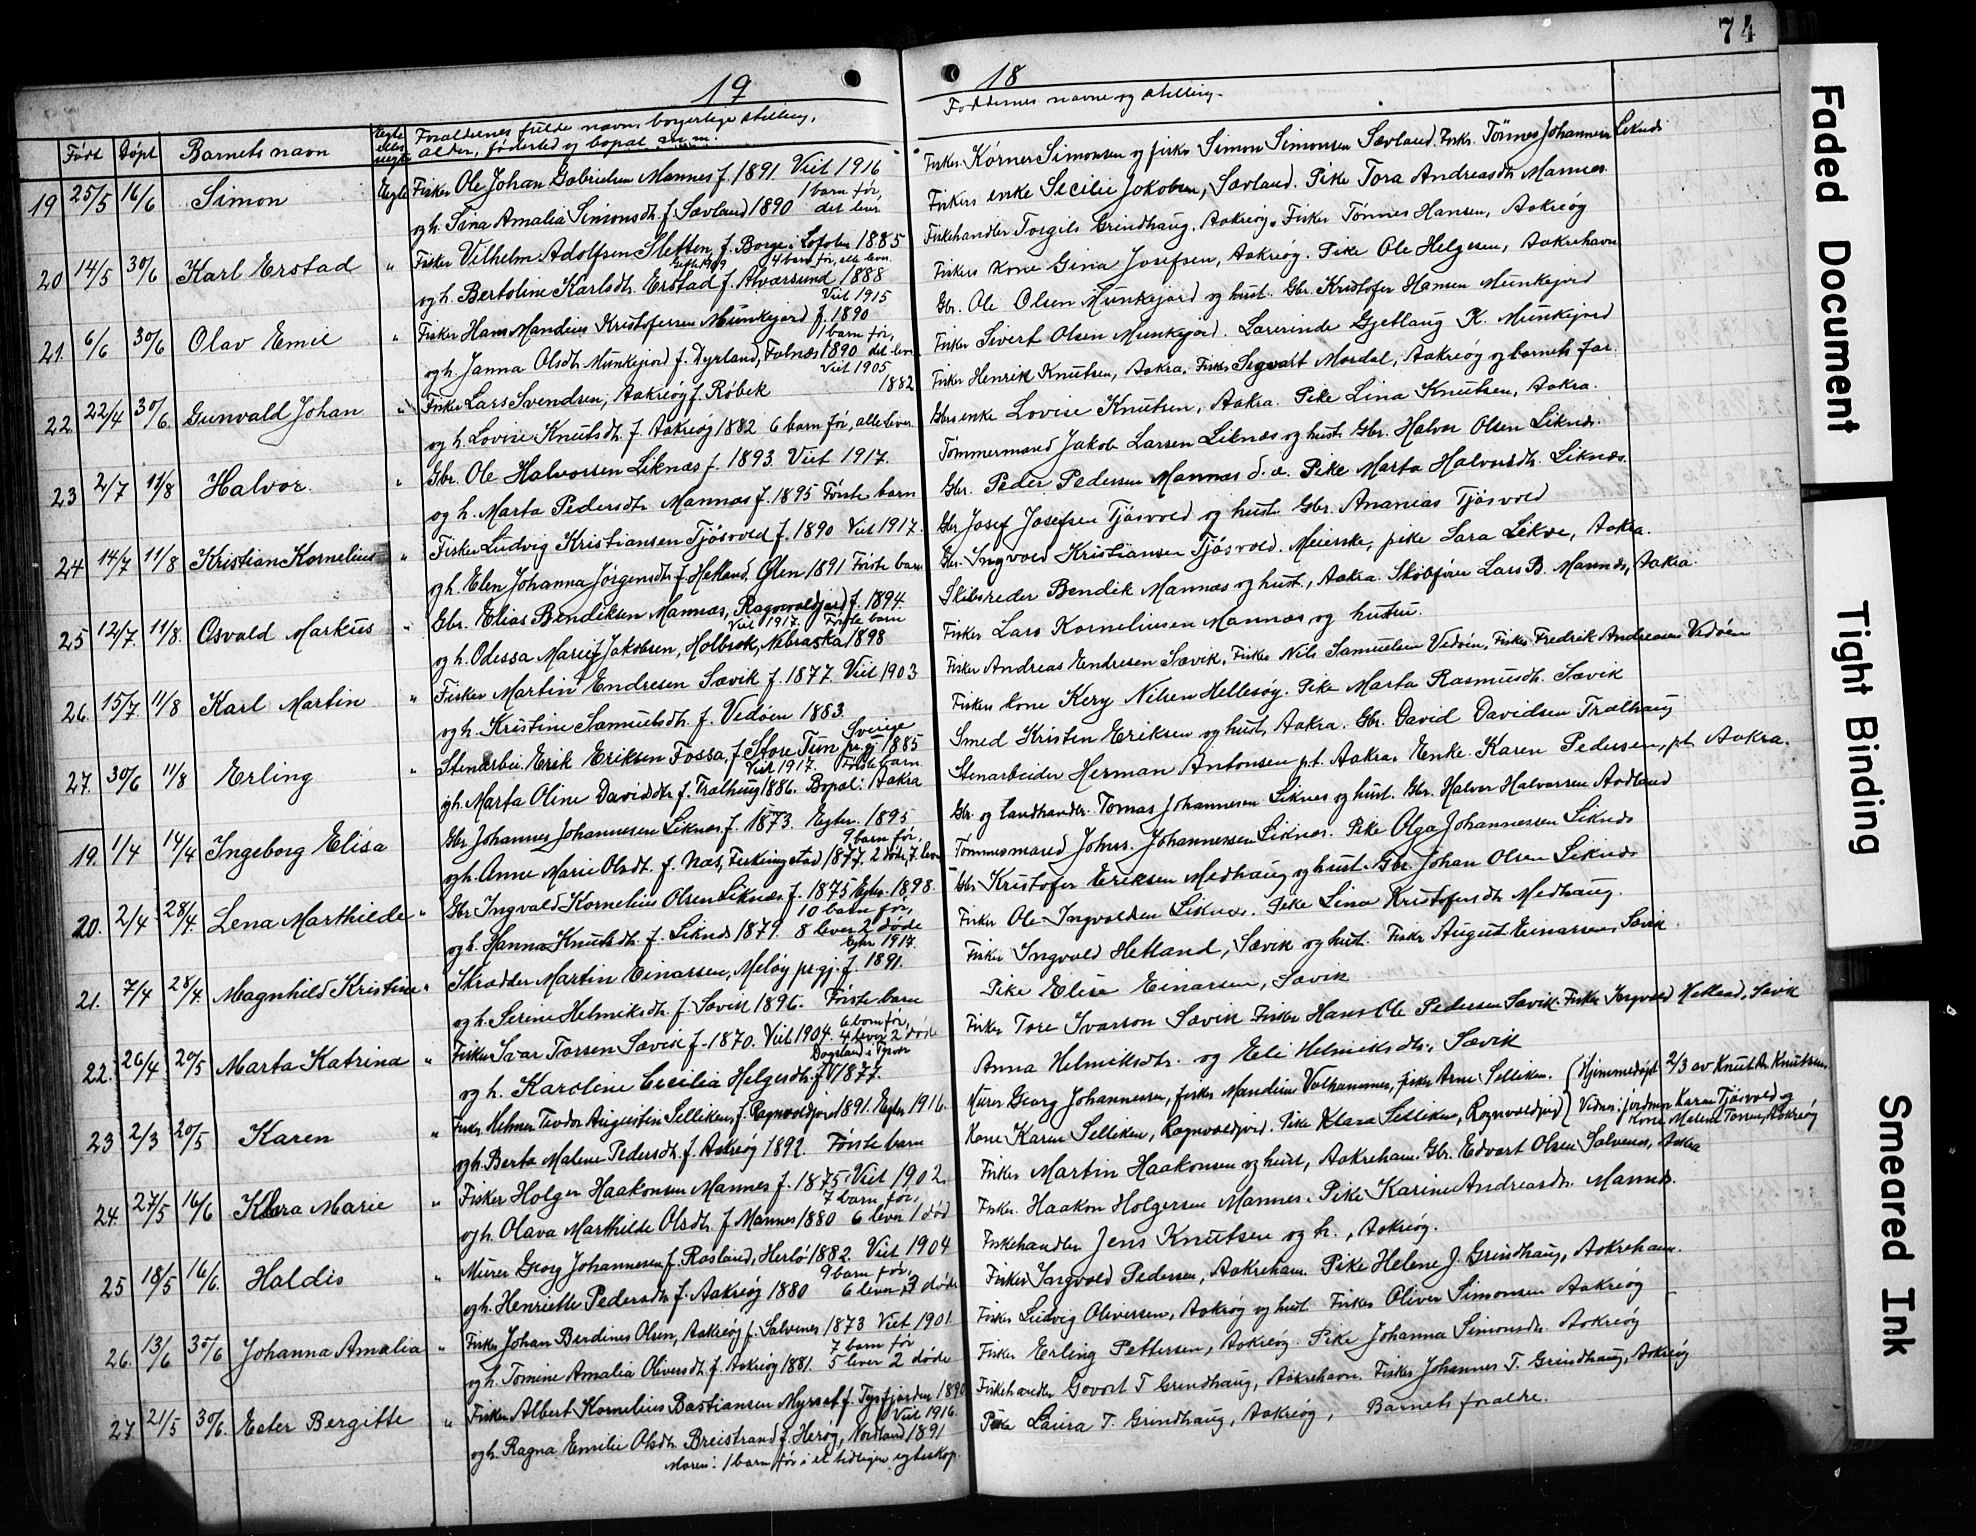 74
19 18
Født Døpt Barnets navn Egte eller uegte Forældrenes fulde navn, borgerlige stilling, alder, fødested og bopæl m.m. Faddernes navne og stilling.
19 25/5 16/6 Simon Egte Fisker Ole Johan Gabrielsen Mannes f. 1891 Viet 1916
og h. Sina Amalia Simonsdtr. f. Sævland 1890 1 barn før, det lever
Fisker Kørner Simonsen og fisker Simon Simonsen Sævland. Fisker Tønnes Johannesen Liknes
Fiskers enke Secilie Jakobsen, Sævland. Pike Tora Andreasdtr Mannes.
20 14/5 30/6 Karl Erstad " Fisker Vilhelm Adolfsen Sletten f. Borge i Lofoten 1885
Gift 1909 4 barn før, alle lever.
og h. Bertoline Karlsdtr. Erstad f. Alværsund 1888
Fiskehandler Torgils Grindhaug, Aakreøg. Fisker Tønnes Hansen, Aakreøg
Fiskers kone Gina Josefsen, Aakreøg. Pike Ole Helgesen, Aakrehavn
21. 6/6 30/6 Olav Emil " Fisker Hans Mandius Kristofersen Munkejord f. 1890 Viet 1915
og h. Janna Olsdtr Munkejord f. Dyrland, Falnæs 1890 1 barn før, det lever
Gbr. Ole Olsen Munkejord og hust. Gbr. Kristofer Hansen Munkejord
Fisker Sivert Olsen Munkejord. Lærerinde Gjetlaug K. Munkejord
22. 22/4 30/6. Gunvald Johan " Fisker Lars Svendsen, Aakreøg f. Røbek 1882 Viet 1905
og h. Lovise Knutsdtr. f. Aakreøg 1882 6 barn før, alle lever
Fisker Henrik Knutsen, Aakra. Fisker Segvart Mordal, Aakreøg og barnets far.
Gbrs enke Lovise Knutsen, Aakra. Pike Lina Knutsen, Aakra.
23 2/7 11/8 Halvor. " Gbr. Ole Halvorsen Liknæs f. 1893. Viet 1917.
og h. Marta Pedersdtr. Mannæs f. 1895 Første barn
Tømmermand Jakob Larsen Liknæs og hust. Gbr. Halvor Olsen Liknæs.
Gbr. Peder Pedersen Mannæs d. æ. Pike Marta Halvorsdtr. Liknæs.
24 14/7 11/8 Kristian Kornelius " Fisker Ludvig Kristiansen Tjøsvold f. 1890 Viet 1917.
og h. Elen Johanna Jørgensdtr. f. Hetland, Ølen 1891 Første barn
Gbr. Josef Josefsen Tjøsvold og hust. Gbr. Ananias Tjøsvold
Gbr. Ingvald Kristiansen Tjøsvold. Meierske, pike Sara Likve, Aakra.
25 12/7. 11/8. Osvald Markus " Gbr. Elias Bendiksen Mannæs, Ragnvaldjord f. 1894.
Viet 1917. Første barn
og h. Odessa Marie f. Jakobsen, Holbrok, Nebraska 1898
Skibsreder Bendik Mannæs og hust., Aakra. Skibsfører Lars B. Mannes, Aakra.
Fisker Lars Korneliusen Mannæs og hustru.
26. 15/7 11/8 Karl Martin " Fisker Martin Endresen Sævik f. 1877. Viet 1903
og h. Kristine Samuelsdtr. f. Vedøen 1883.
Fisker Andreas Endresen Sævik. Fisker Nils Samuelsen Vedøen. Fisker Fredrik Andreasen Vedøen
Fiskers kone Kery Nilsen Hellesøg. Pike Marta Rasmusdtr. Sævik
27. 30/6 11/8 Erling " Stenarbei. Erik Eriksen Fossa, f. Store Tun pr.gj. Sverige 1885
Viet 1917. Første barn.
og h. Marta Oline Davidsdtr. f. Trælhaug 1886. Bopæl: Aakra
Smed Kristen Eriksen og hust. Aakra. Gbr. David Davidsen Trælhaug
Stenarbeider Herman Antonsen p.t. Aakra. Enke Karen Pedersen, p.t. Aakra.
19. 1/4 14/4 Ingeborg Elisa Gbr Johannes Johannesen Liknes f. 1873. Egtev. 1895
og h. Anne Marie Olsdt. f. Næs, Ferkingstad 1877. 9 barn før, 2 døde, 7 lever
Gbr. og landhandler. Tomas Johannesen Liknes og hust. Gbr. Halvor Halvorsen Aadland
Tømmermand Johs. Johannessen Liknes. Pike Olga Johannessen Liknes
20. 2/4 28/4. Lena Marthilde " Gbr Ingvald Kornelius Olsen Liknæs f. 1875 Egtv. 1898.
og h. Hanna Knutsdtr. f. Liknes 1879. 10 barn før, 8 lever 2 døde
Gbr Kristofer Eriksen Medhaug og hust. Gbr. Johan Olsen Liknes
Fisker Ole Ingvaldsen Liknes. Pike Lina Kristofersdtr. Medhaug.
21. 7/4 28/4. Magnhild Kristine " Skrædder Martin Einarsen, Meløy pr.gj. f. 1891. Egtv 1917.
og h. Serine Helmiksdtr. f. Sævik 1896. Første barn
Fisker Ingvald Hetland, Sævik og hust. Fisker August Einarsen, Sævik.
Pike Elise Einarsen, Sævik
22. 26/4 20/5 Marta Katrina " Fisker Ivar Torsen Sævik f. 1870. Viet 1904. 6 barn før, 4 lever 2 døde
og h. Karoline Cecilia Helgesdtr. f. Dagsland i Tysvær 1877.
Fisker Tore Ivarson Sævik Fisker Hans Ole Pedersen Sævik. Fisker Ingvald Hetland, Sævik
Anna Helmiksdtr. og Eli Helmiksdtr., Sævik
23 2/3 20/5 Karen " Fisker Helmer Teodor Augustin Selliken, f. Ragnvaldjord 1891. Egtev 1916.
og h. Berta Malene Pedersdtr. f. Aakreøg 1892. Første barn
Murer Georg Johannesen, fisker Mandius Valhammer, fisker Arne Selliken. (Hjemmedøpt 2/3 av Knut A. Knutsen.
Kone Karen Selliken, Ragnvaldjord. Pike Klara Selliken, Ragnvaldjord) Vidner: jordmor Karen Tjøsvold og
kone Malene Torsen, Aakreøg
24. 27/5 16/6 Klara Marie " Fisker Holger Haakonsen Mannes f. 1875. Viet 1902.
og h. Olava Marthilde Olsdtr. f. Mannes 1880 7 barn før, 6 lever 1 død
Fisker Martin Haakonsen og hust, Aakreham. Gbr. Edvart Olsen Salvenes, Aakra
Fisker Haakon Holgersen Mannes. Pike Karine Andreasdtr. Mannes.
25 18/5 16/6. Haldis " Murer Georg Johannesen f. Rosland, Herlø 1882. Viet 1904
og h. Henriette Pedersdtr. f. Aakreøg 1880 9 barn før, 6 lever 3 døde
Fiskehandler Jens Knutsen og h., Aakreøg.
Fisker Ingvald Pedersen, Aakreham. Pike Helene J. Grindhaug, Aakreham.
26. 13/6 30/6 Johanna Amalia " Fisker Johan Berdines Olsen, Aakreøg f. Salvenes 1873 Viet 1901
og h. Tomine Amalia Oliversdt. f. Aakreøg 1881. 7 barn før 5 lever 2 døde
Fisker Ludvig Oliversen, Aakreøg og hust. Fisker Oliver Simonsen Aakreøg
Fisker Erling Pettersen, Aakreøg. Pike Johanna Simonsdtr. Aakreøg
27. 21/5 30/6. Ester Bergitte " Fisker Albert Kornelius Bastiansen Myrset f. Tysfjorden 1890
Viet 1916.
og h. Ragna Emilie Olsdtr. Breistrand f. Herøg, Nordland 1891
Moren: 1 barn før i et tidligere egteskap.
Fiskehandler Govort T Grindhaug, Aakrehavn. Fisker Johannes T. Grindhaug, Aakreøg
Pike Laura T. Grindhaug, Aakreøg, Barnets forældre.
Faded Document
Tight Binding
Smeared Ink